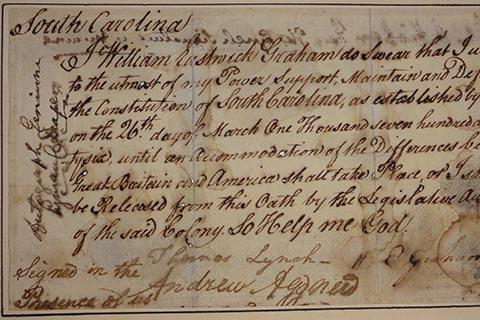 South Carolina
I William Eastwick Graham do Swear that I w
to the utmost of my Power Support, Maintain and Def
the Constitution of South Carolina, as established by
on the 26th day of March One Thousand seven hundred a
ty six, until an Accommodation of the Differences be
Great Britain and America shall take Place, or I sh
be Released from this Oath by the Legislative Au
of the said Colony. So Help me God.
Signed in the Thomas Lynch W E Graham
Presence of us Andrew
Autograph Genuine